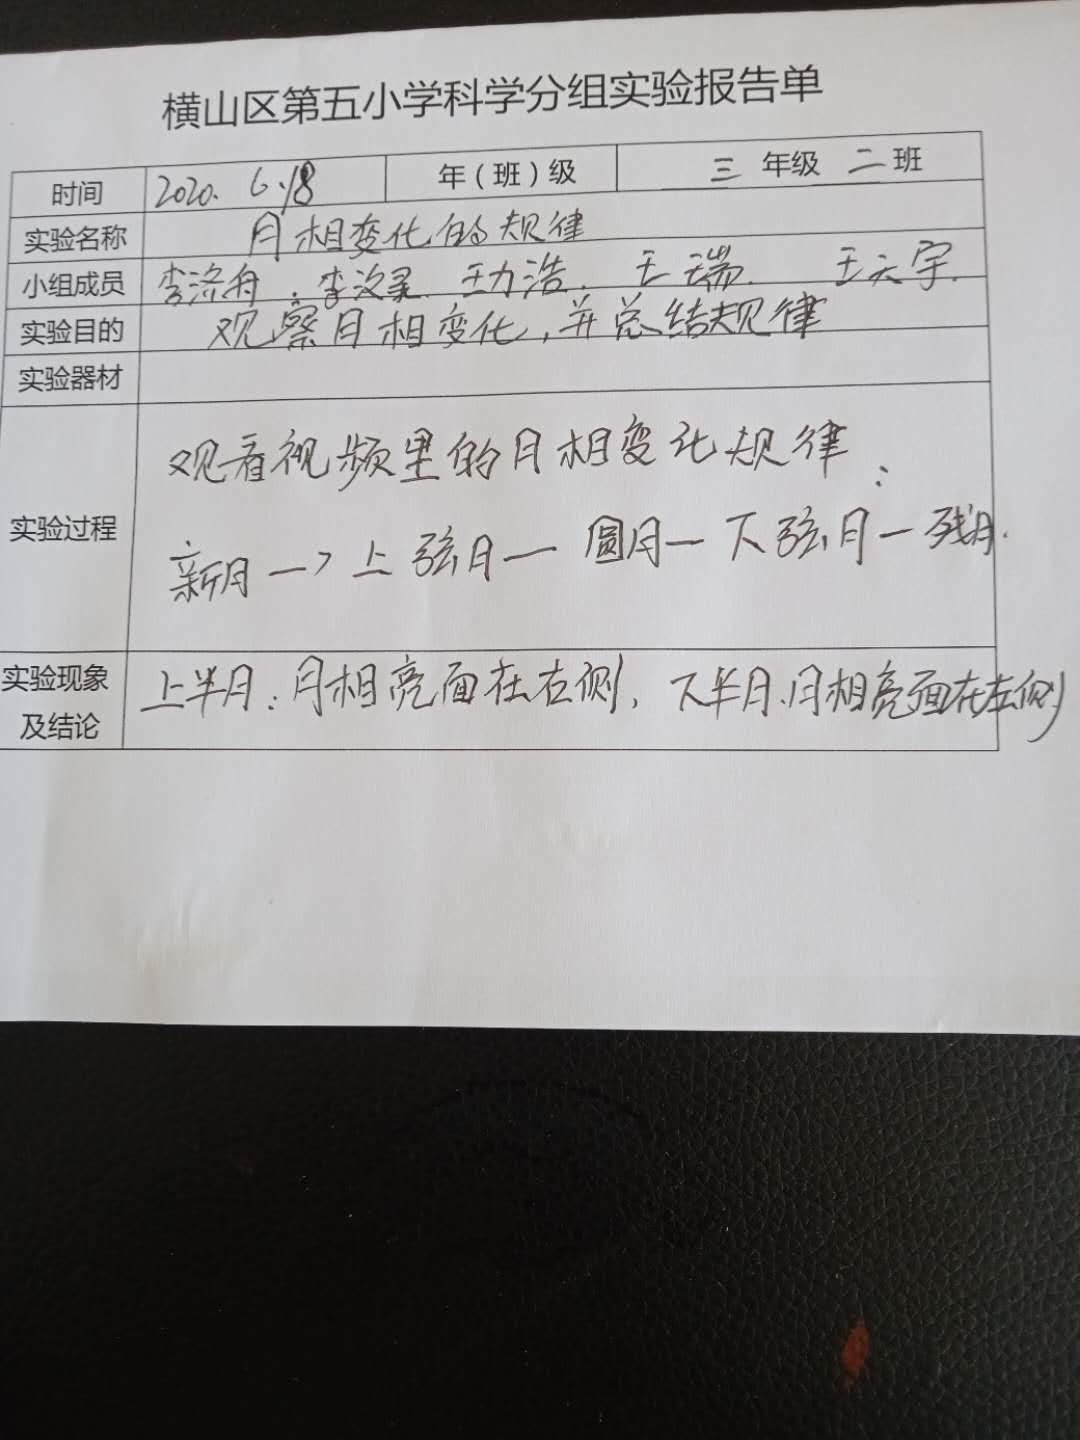 横山区第五小学科学分组实验报告单
时间 2020. 6.18 年(班)级 三 年级 二 班
实验名称 月相变化的规律
小组成员 李济舟. 李汶 王力浩. 王瑞. 王天宇.
实验目的 观察月相变化,并总结规律
实验器材
观看视频里的月相变化规律:
实验过程
新月—>上弦月—圆月—下弦月—残月.
实验现象 上半月:月相亮面在右侧, 下半月.月相亮面在左侧
及结论